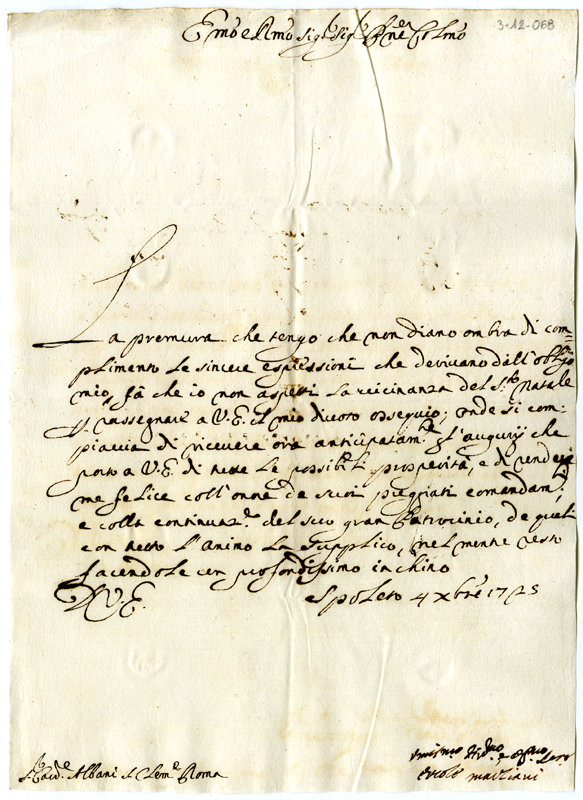 3-12-068
Emo e Rmo Sigre Sigre Pne Colmo
La premura che tengo che non diano ombra di com=
plimento le sincere espressioni che derivano dall'obbligo
mio, fà che io non aspetti la vicinanza del S.to Natale
p rassegnare a V.E. il mio divoto ossequio; onde si com:
piaccia di ricevere ora anticipatam.te gl'augurij che
porto a V.E. di tutte le possibili prosperità, e di render
me felice coll'onore de suoi pregiati comandam.ti
e colla continuaz.e del suo gran Patrocinio, de quali
con tutto l'animo la supplico, nel mentre resto
facendole con profondissimo inchino
D V.E.
Spoleto 4 Xbre 1725
S. Card.e Albani S. Clem.e Roma
Ercole Marziani